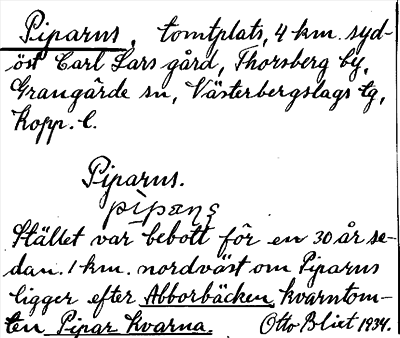 Piparns, tomtplats, 4 km. syd-
öst Carl Lars gård, Thorsberg by,
Grangärde sn, Västerbergslags tg,
Kopp. l.
Piparns.
Stället var bebott för en 30 år se-
dan. 1 km. nordväst om Piparns
ligger efter Abborbäcken kvarntom-
ten Pipar Kvarna. Otto Blixt 1934.